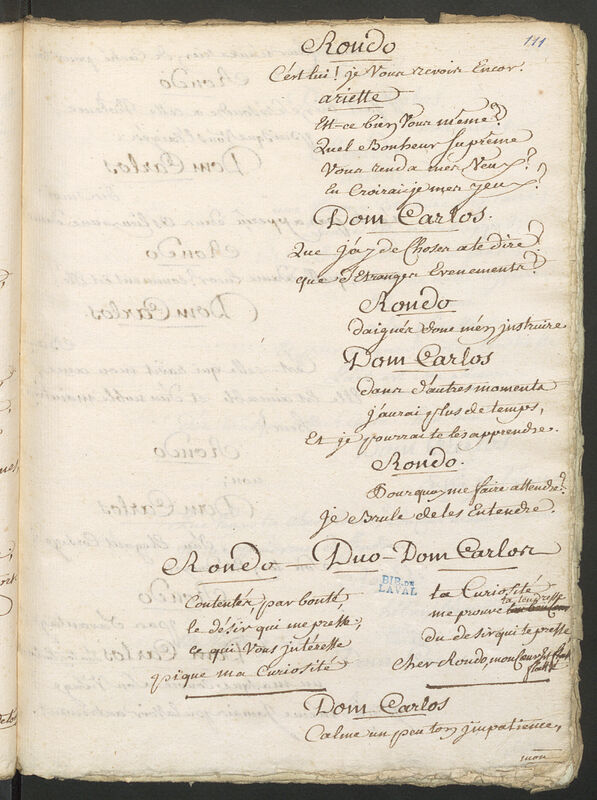 111
Rondo
C'est lui! je Vous revois Encor.
ariette
Est-ce bien Vous même?
Quel Bonheur Suprême
Vous rend a mes Veux?
En Croirai-je mes yeux?
Dom Carlos.
Que j'ay de Choses a te dire!
que d'Etranges Evenements!
Rondo
daignés donc m'en jnstruire
Dom Carlos
dans d'autres moments
j'aurai plus de temps,
Et je pourrai te les apprendre.
Rondo.
Pourquoy me faire attendre?
Je Brule de les Entendre.
Rondo — Duo — Dom Carlos
Contentés par bonté
le désir qui me presse,
ce qui Vous intéresse
pique ma Curiosité
BIB. DE LAVAL
ta Curiosité
me prouve ta tendresse
du desir qui te presse
Cher Rondo, mon Coeur Est flatté
Dom Carlos
Calme un peu ton jmpatience,
mon